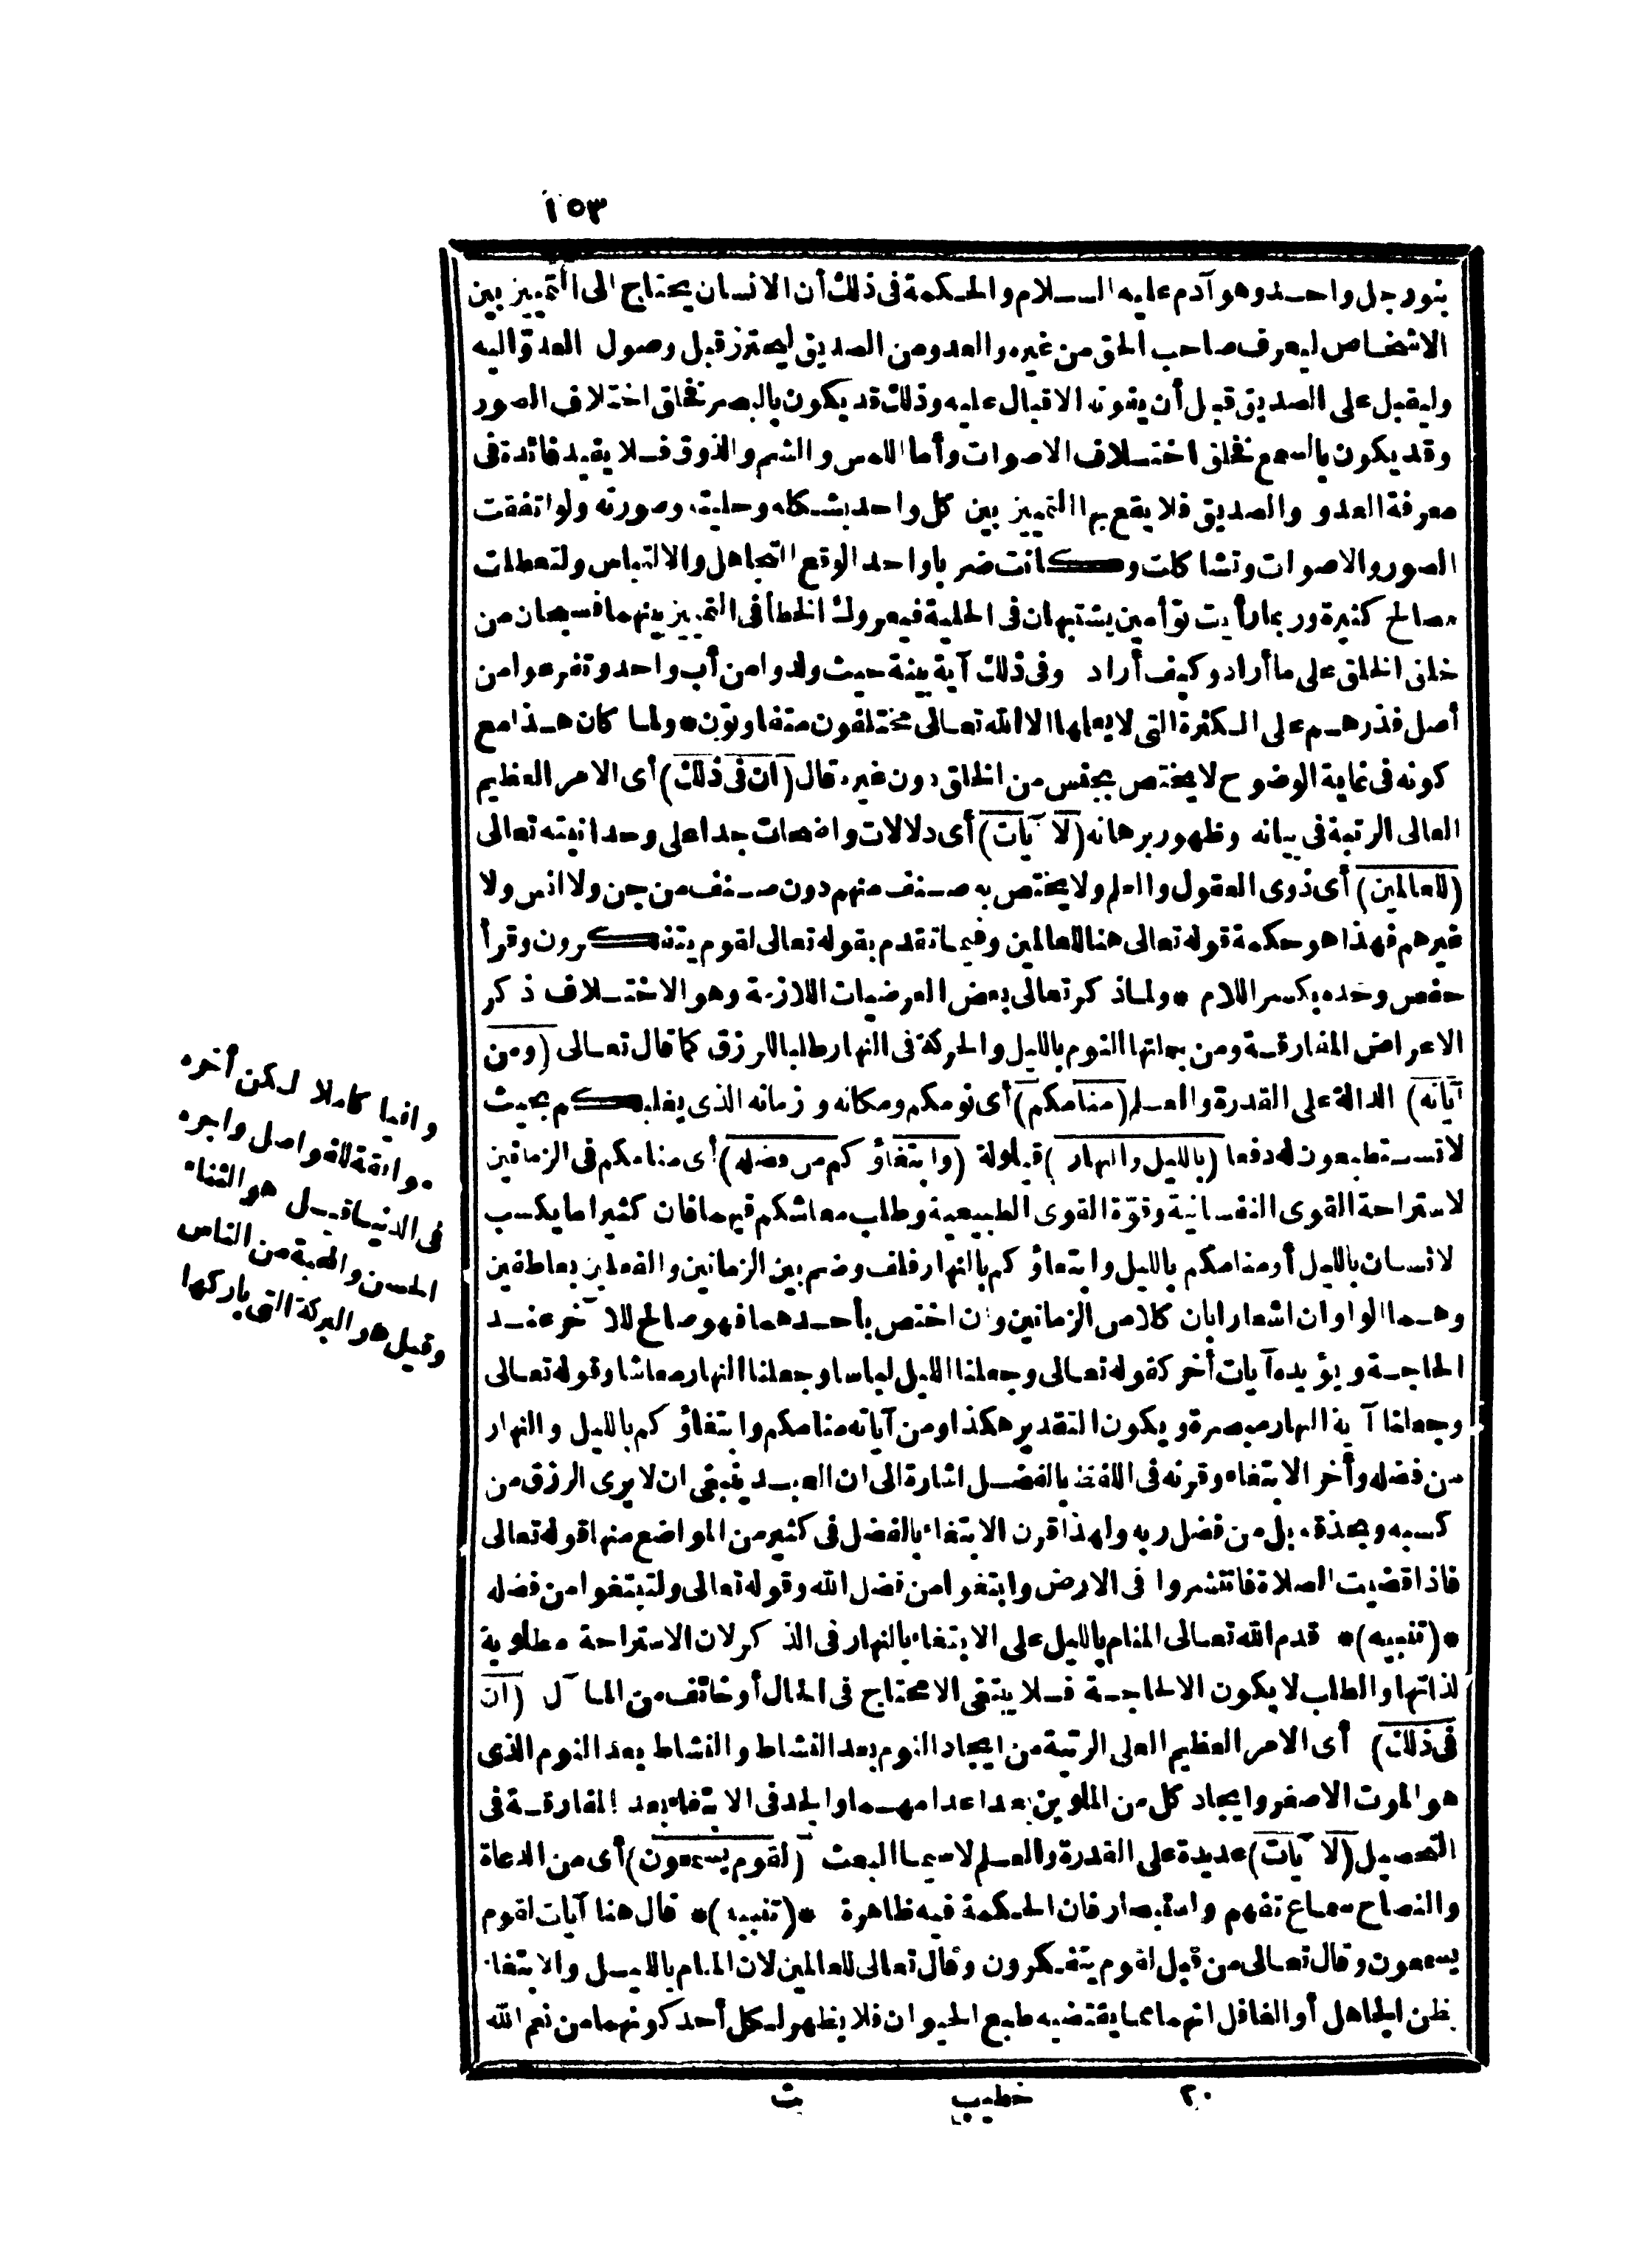 ١٥٣
بنو رجل واحد وهو آدم عليه السلام والحكمة فى ذلك أن الانسان يحتاج الى التمييز بين
الاشخاص ليعرف صاحب الحق من غيره والعدو من الصديق ليحترز قبل وصول العدوّ اليه
وليقبل على الصديق قبل أن يفوته الاقبال عليه وذلك قد يكون بالبصر فخلق اختلاف الصور
وقد يكون بالسمع فخلق اختلاف الاصوات وأما اللمس والشم والذوق فلا يفيد فائدة فى
معرفة العدو والصديق فلا يقع بها التمييز بين كل واحد بشكله وحليته وصورته ولو اتفقت
الصور والاصوات وتشاكلت وكانت ضربا واحدا لوقع التجاهل والالتباس ولتعطلت
مصالح كثيرة وربما رأيت توأمين يشتبهان فى الحلية فيعروك الخطأ فى التمييز بينهما فسبحان من
خلق الخلق على ما أراد وكيف أراد وفى ذلك آية بينة حيث ولدوا من أب واحد وتفرعوا من
أصل فذ وهم على الكثرة التى لا يعلمها الا الله تعالى مختلفون متفاوتون * ولما كان هذا مع
كونه فى غاية الوضوح لا يختص بجنس من الخلق دون غيره قال (ان فى ذلك) أى الامر العظيم
العالى الرتبة فى بيانه وظهور برهانه (لآيات) أى دلالات واضحات جدا على وحدانيته تعالى
(للعالمين) أى ذوى العقول والعلم ولا يختص به صنف منهم دون صنف من جن ولا انس ولا
غيرهم فهذا هو حكمة قوله تعالى هنا للعالمين وفيما تقدم بقوله تعالى لقوم يتفكرون وقرأ
حفص وحده بكسر اللام * ولما ذكر تعالى بعض العرضيات اللازمة وهو الاختلاف ذكر
الاعراض المفارقة ومن جملتها النوم بالليل والحركة فى النهار طلبا للرزق كما قال تعالى (ومن
آياته) الدالة على القدرة والعلم (منامكم) أى نومكم ومكانه وزمانه الذى يغلبكم بحيث
لا تستطيعون له دفعا (بالليل والنهار) قيلولة (وابتغاؤكم من فضله) أى منامكم فى الزمانين
لاستراحة القوى النفسانية وقوّة القوى الطبيعية وطلب معاشكم فيهما فان كثيرا ما يكسب
لانسان بالليل أو منامكم بالليل وابتغاؤكم بالنهار فلف وضم بين الزمانين والفعلين بعاطفين
وهما الواوان اشعارا بان كلا من الزمانين وان اختص بأحدهما فهو صالح للآخر عند
الحاجة ويؤيده آيات أخر كقوله تعالى وجعلنا الليل لباسا وجعلنا النهار معاشا وقوله تعالى
وجعلنا آية النهار مبصرة ويكون التقدير هكذا ومن آياته منامكم وابتغاؤكم بالليل والنهار
من فضله وأخر الابتغاء وقرنه فى اللفظ بالفضل اشارة الى ان العبد ينبغى ان لا يرى الرزق من
كسبه وبحذقه بل من فضل ربه ولهذا قرن الابتغاء بالفضل فى كثير من المواضع منها قوله تعالى
فاذا قضيت الصلاة فانتشروا فى الارض وابتغوا من فضل الله وقوله تعالى ولتبتغوا من فضله
* (تنبيه) * قدم الله تعالى المنام بالليل على الابتغاء بالنهار فى الذكر لان الاستراحة مطلوبة
لذاتها والطلب لا يكون الا لحاجة فلا يبتغى الا محتاج فى الحال أو خائف من المآل (ان
فى ذلك) أى الامر العظيم العلى الرتبة من ايجاد النوم بعد النشاط والنشاط بعد النوم الذى
هو الموت الاصغر وايجاد كل من الملوين بعد اعدامهما والجد فى الابتغاء بعد المفارقة فى
التحصيل (لآيات) عديدة على القدرة والعلم لا سيما البعث (لقوم يسمعون) أى من الدعاة
والنصاح سماع تفهم واستبصار فان الحكمة فيه ظاهرة * (تنبيه) * قال هنا آيات لقوم
يسمعون وقال تعالى من قبل لقوم يتفكرون وقال تعالى للعالمين لان المنام بالليل والابتغاء
يظن الجاهل أو الغافل انهما مما يقتضيه طبع الحيوان فلا يظهر لكل أحد كونهما من نعم الله
وافيا كاملا لكن أخره
موافقة للفواصل واجره
فى الدنيا قيل هو الثناء
الحسن والمحبة من الناس
وقيل هو البركة التى باركها
٢٠ خطيب ث